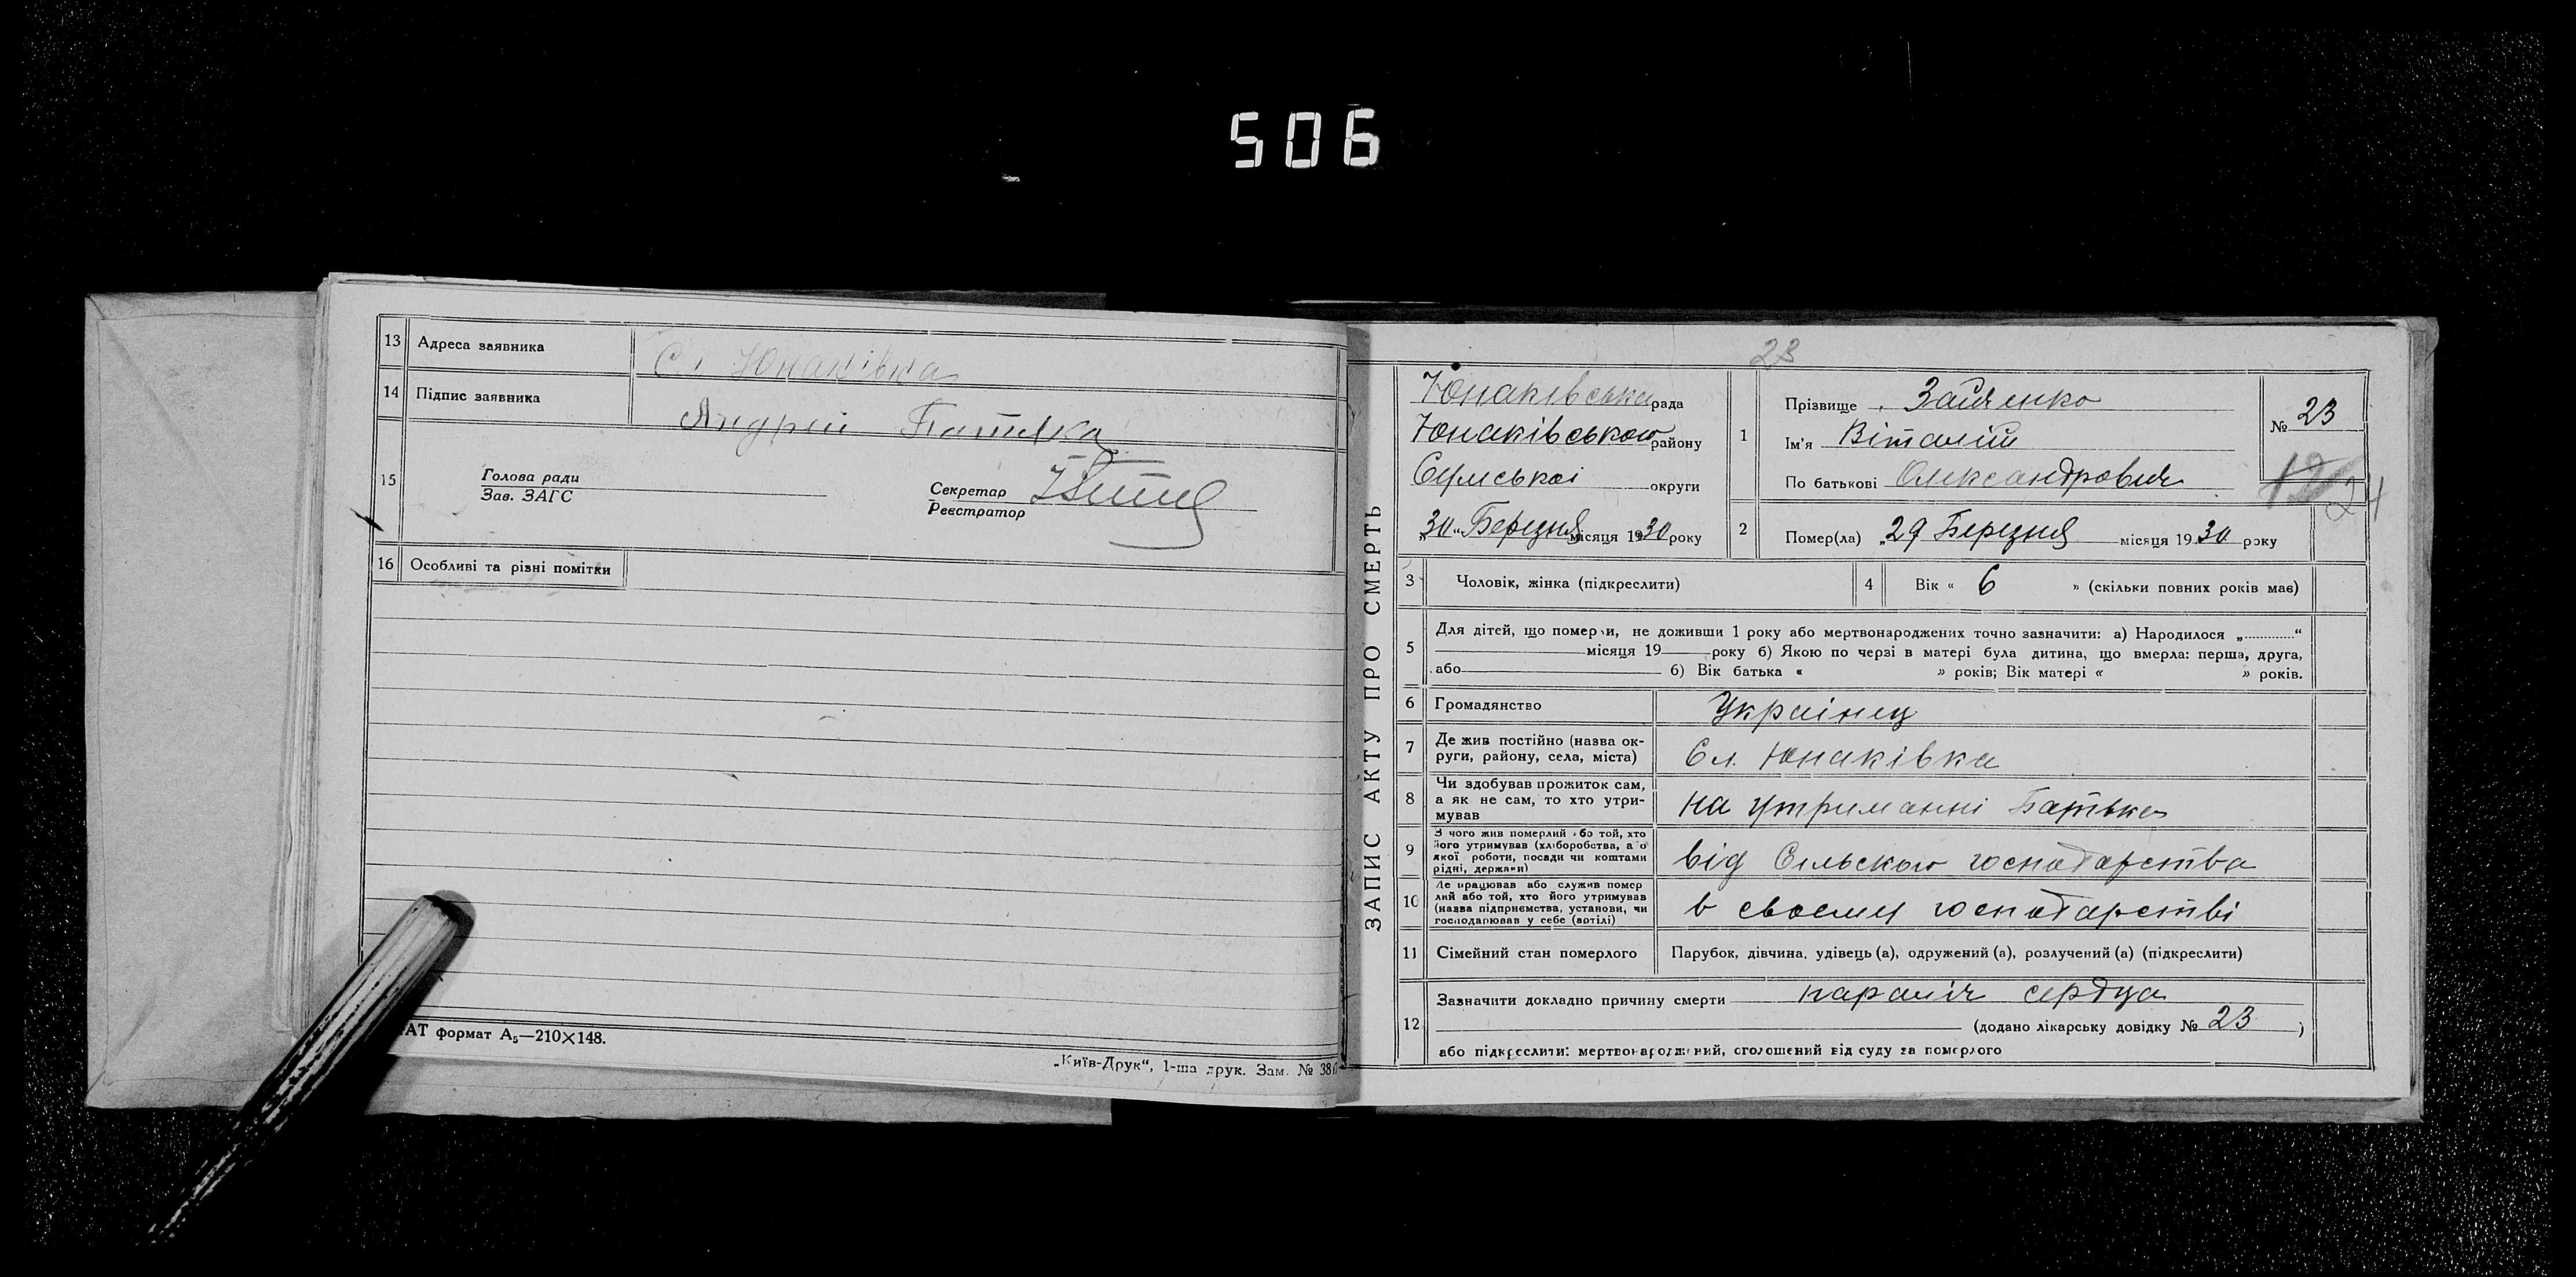 506
13 Адреса заявника Сл Юнаківка
14 Підпис заявника Андрій
15 Голова ради
Зав. ЗАГС
Секретар
Реєстратор
16 Особливі та різні помітки
АТ формат А5—210×148.
„Київ-Друк“, 1-ша друк. Зам. № 38
ЗАПИС АКТУ ПРО СМЕРТЬ
23
Юнаківська рада
Юнаківського району
Сумської округи
„30“ Березня місяця 1930 року
1 Прізвище Заяченко
Ім'я Віталій
По батькові Олександрович
№ 23
24
2 Помер(ла) „29 Березня місяця 1930 року
3 Чоловік, жінка (підкреслити)
4 Вік « 6 » (скільки повних років має)
5 Для дітей, що померли, не доживши 1 року або мертвонароджених точно зазначити: а) Народилося „ “
місяця 19 року б) Якою по черзі в матері була дитина, що вмерла: перша, друга,
або б) Вік батька « » років; Вік матері « » років.
6 Громадянство Українец
7 Де жив постійно (назва ок-
руги, району, села, міста) Сл. Юнаківка
8 Чи здобував прожиток сам,
а як не сам, то хто утри-
мував на утриманні Батька
9 З чого жив померлий або той, хто
його утримував (хліборобства, або
якої роботи, посади чи коштами
рідні, держави) від Сільского господарства
10 Де працював або служив помер
лий або той, хто його утримував
(назва підприємства, установи, чи
господарював у себе (вотілі) в своєму господарстві
11 Сімейний стан померлого Парубок, дівчина, удівець (а), одружений (а), розлучений (а) (підкреслити)
12 Зазначити докладно причину смерти параліч сердца
(додано лікарську довідку № 23 )
або підкреслити: мертвонароджений, оголошений від суду за померлого